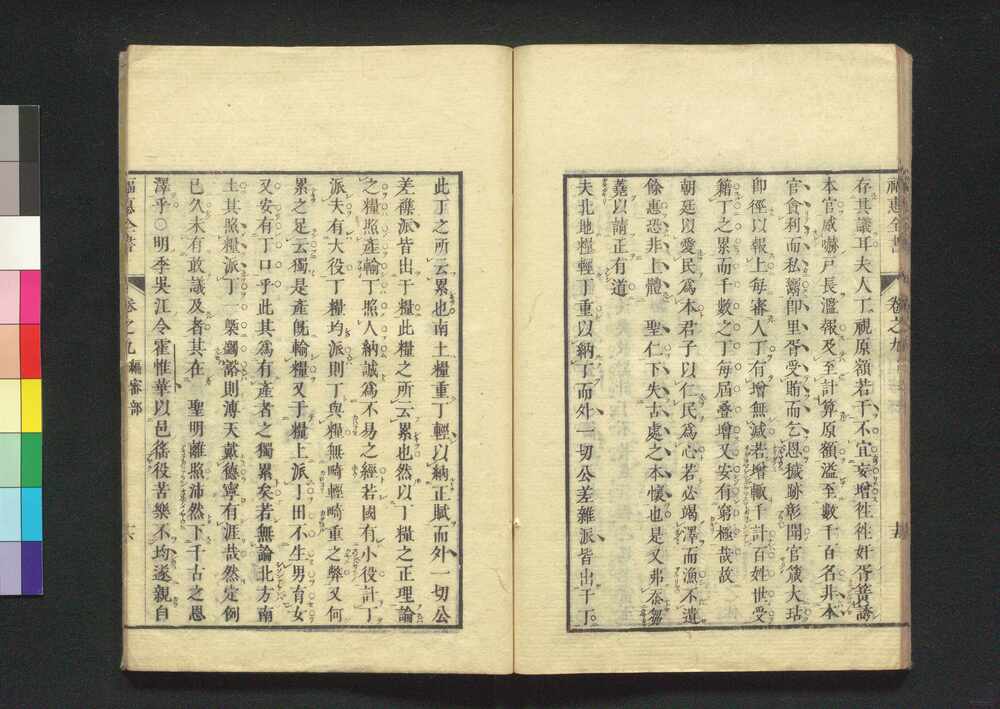 存其議耳夫人丁視原額若干不宜妄增徃徃奸胥簧誘
本官威嚇戸長濫報及至計算原額溢至數千百名非本
官貪利而私鬻即里胥受賄而乞恩穢跡彰聞官箴大玷
即徑以報上每審人丁有增無減若增輙千計百姓世受
籍丁之累而千數之丁每屆叠增又安有窮極哉故
朝廷以愛民爲本君子以仁民爲心若必竭澤而漁不遺
餘惠恐非上體　聖仁下失古處之本懷也是又弗忝芻
蕘以請正有道
夫北地糧輕丁重以納丁而外一切公差雜派皆出于丁
福惠全書　卷之九
此丁之所云累也南土糧重丁輕以納正賦而外一切公
差襍派皆出于糧此糧之所云累也然以丁糧之正理論
之糧照產輸丁照人納誠爲不易之經若國有小役計丁
派夫有大役丁糧均派則丁與糧無畸輕畸重之弊又何
累之足云獨是產既輸糧又于糧上派丁田不生男育女
又安有丁口乎此其爲有產者之獨累矣若無論北方南
土其照糧派丁一槩蠲豁則溥天戴德寧有涯哉然定例
已久未有敢議及者其在　聖明離照沛然下千古之恩
澤乎○明季吳江令霍惟華以邑徭役苦樂不均遂親自
福惠全書　卷之九　編審部　六